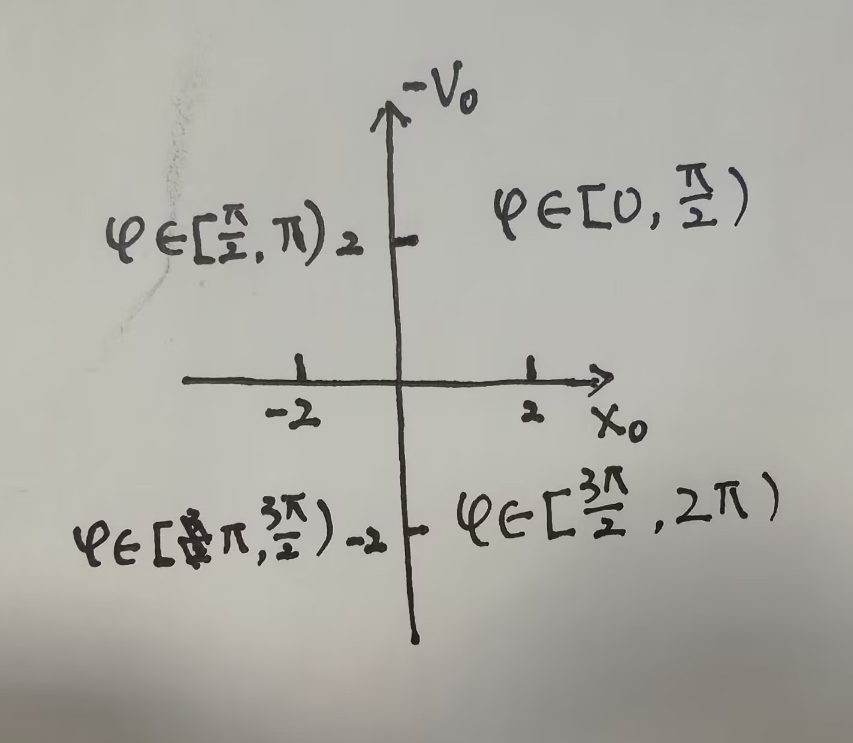 -V₀
φ∈[π/2, π) 2 φ∈[0, π/2)
-2 2 x₀
φ∈[π, 3π/2) -2 φ∈[3π/2, 2π)